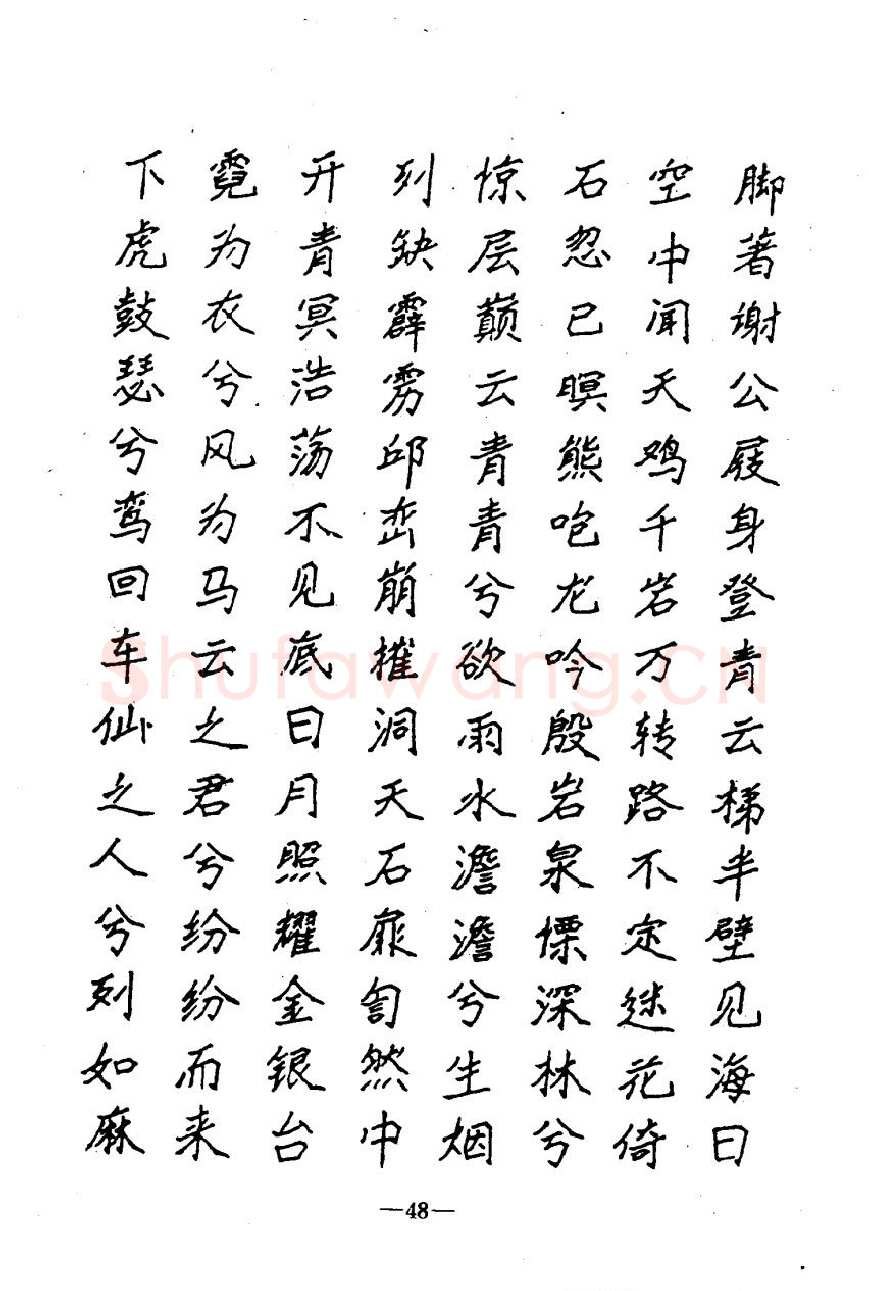 脚著谢公屐身登青云梯半壁见海日
空中闻天鸡千岩万转路不定迷花倚
石忽已暝熊咆龙吟殷岩泉慄深林兮
惊层巅云青青兮欲雨水澹澹兮生烟
列缺霹雳邱峦崩摧洞天石扉訇然中
开青冥浩荡不见底日月照耀金银台
霓为衣兮风为马云之君兮纷纷而来
下虎鼓瑟兮鸾回车仙之人兮列如麻
—48—
Shufawang.CN